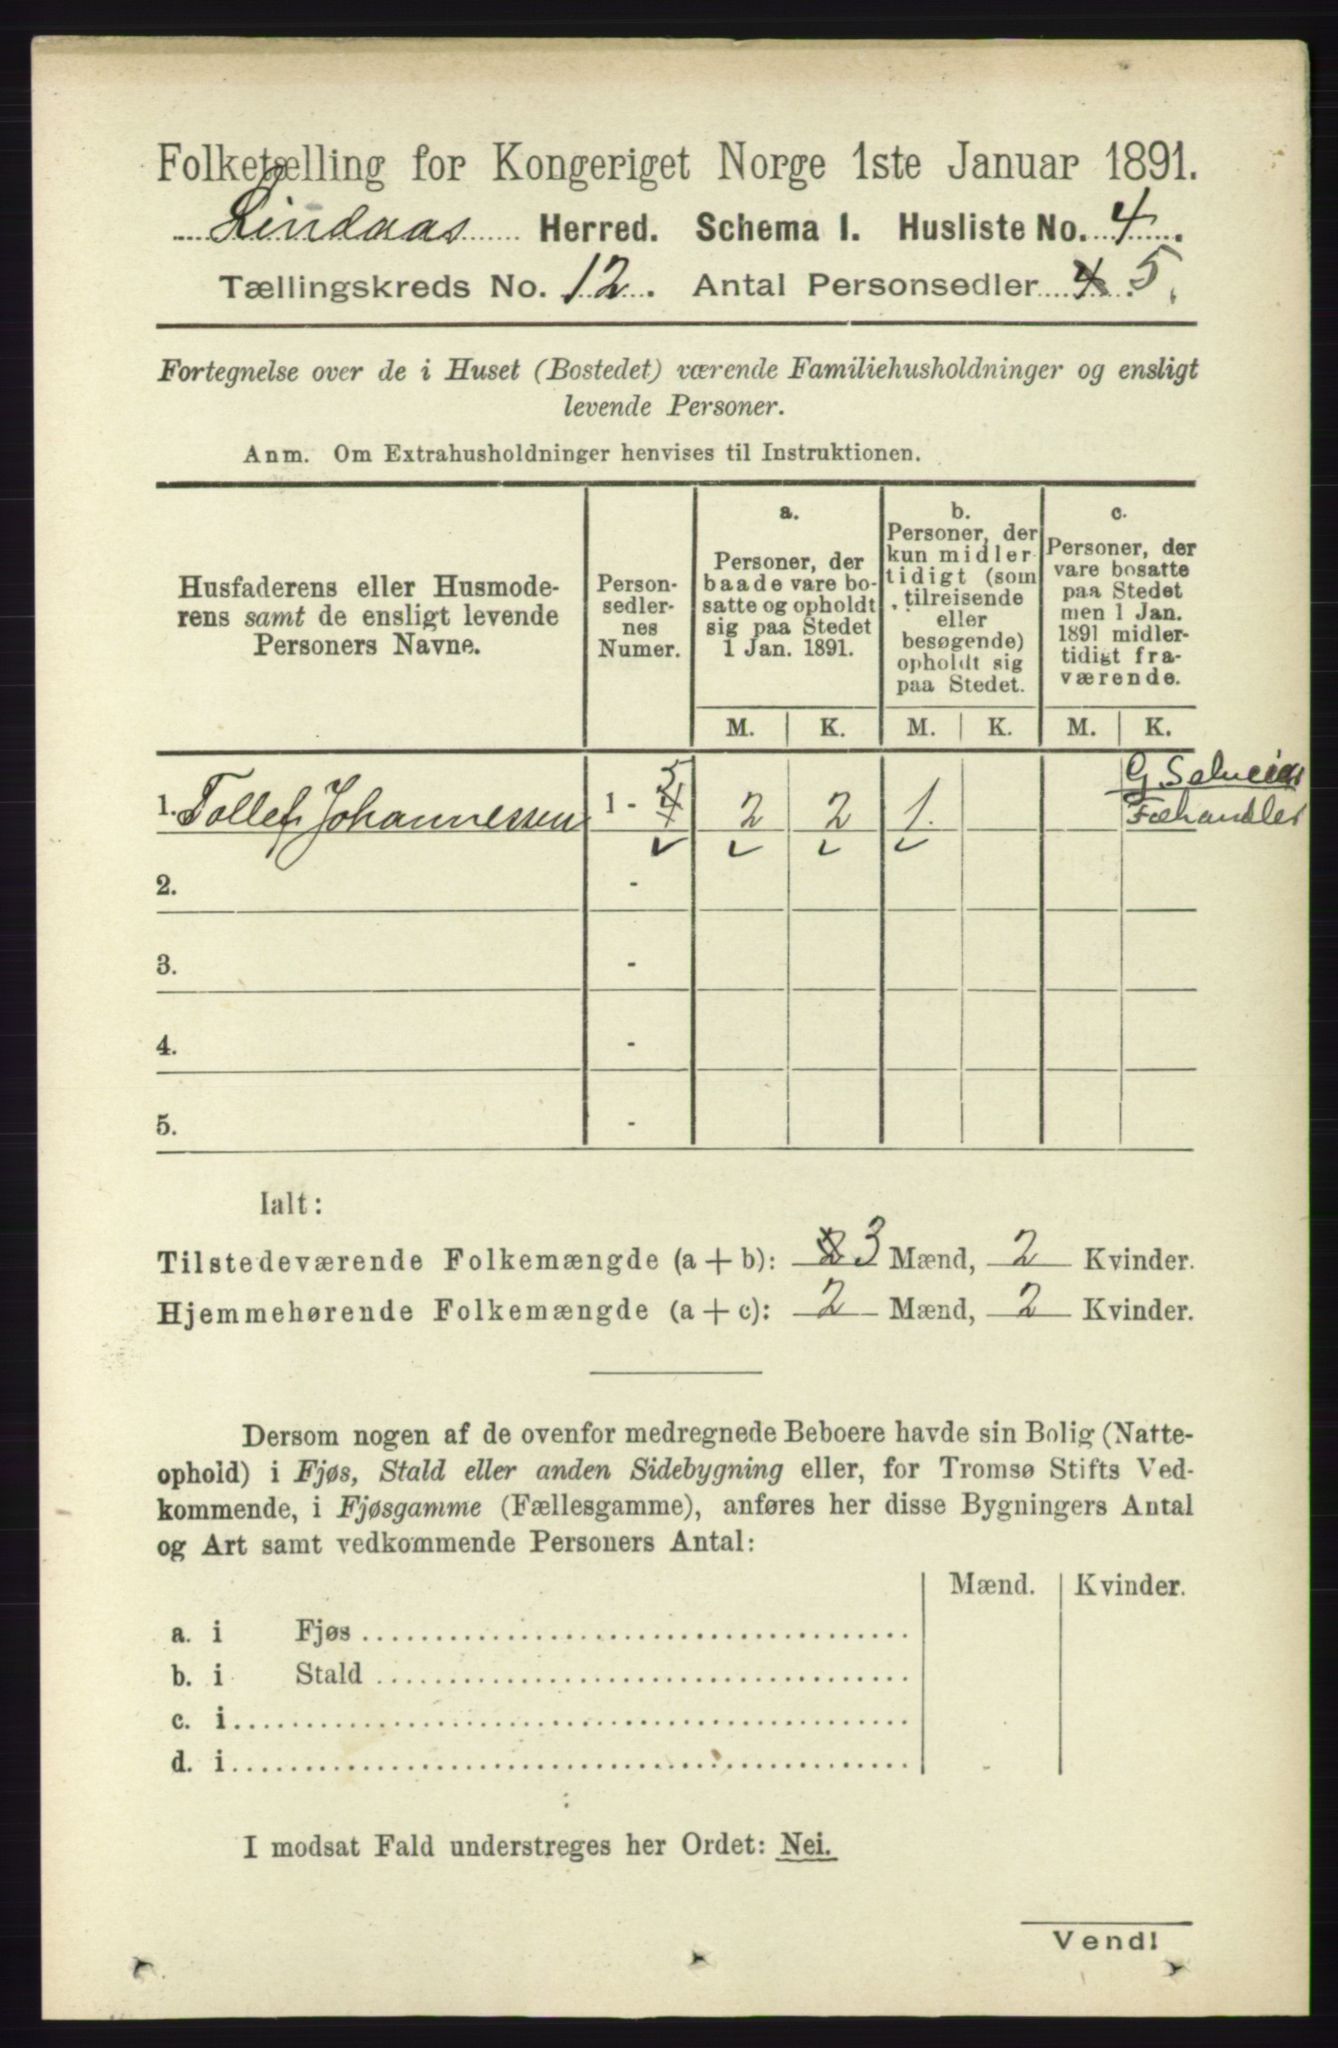 Folketælling for Kongeriget Norge 1ste Januar 1891.
Lindaas Herred. Schema I. Husliste No. 4.
Tællingskreds No. 12. Antal Personsedler 4 5.
Fortegnelse over de i Huset (Bostedet) værende Familiehusholdninger og ensligt
levende Personer.
Anm. Om Extrahusholdninger henvises til Instruktionen.
Husfaderens eller Husmode-
rens samt de ensligt levende
Personers Navne.
Person-
sedler-
nes
Numer.
a.
Personer, der
baade vare bo-
satte og opholdt
sig paa Stedet
1 Jan. 1891.
b.
Personer, der
kun midler-
tidigt (som
tilreisende
eller
besøgende)
opholdt sig
paa Stedet.
c.
Personer, der
vare bosatte
paa Stedet
men 1 Jan.
1891 midler-
tidigt fra-
værende.
M. K. M. K. M. K.
1. Tollef Johannessen 1 - 4 5 2 2 1.
G.
Fæhandler
2. -
3. -
4. -
5. -
Ialt:
Tilstedeværende Folkemængde (a + b): 2 3 Mænd, 2 Kvinder.
Hjemmehørende Folkemængde (a + c): 2 Mænd, 2 Kvinder.
Dersom nogen af de ovenfor medregnede Beboere havde sin Bolig (Natte-
ophold) i Fjøs, Stald eller anden Sidebygning eller, for Tromsø Stifts Ved-
kommende, i Fjøsgamme (Fællesgamme), anføres her disse Bygningers Antal
og Art samt vedkommende Personers Antal:
Mænd. Kvinder.
a. i Fjøs
b. i Stald
c. i
d. i
I modsat Fald understreges her Ordet: Nei.
Vend!